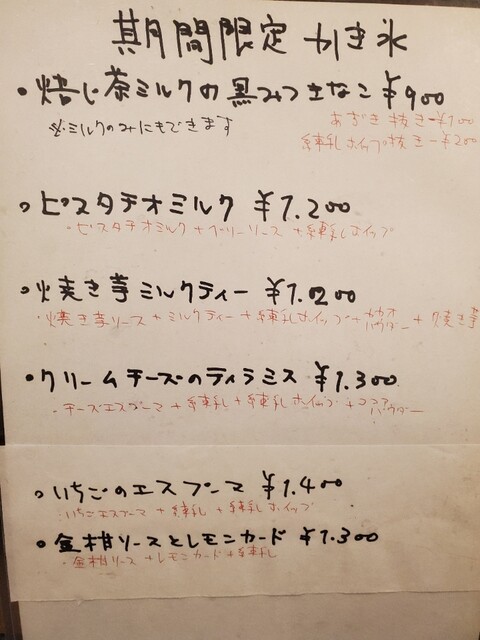 期間限定 かき氷
・焙じ茶ミルクの黒みつきなこ ¥900
※ミルクのみにもできます
あずき抜き -¥100
練乳ホイップ抜き -¥200
・ピスタチオミルク ¥1.200
・ピスタチオミルク + ベリーソース + 練乳ホイップ
・焼き芋ミルクティー ¥1.200
・焼き芋ソース + ミルクティー + 練乳ホイップ + カカオパウダー + 焼き芋
・クリームチーズのティラミス ¥1.300
・チーズエスプーマ + 練乳 + 練乳ホイップ + ココアパウダー
・いちごのエスプーマ ¥1.400
・いちごエスプーマ + 練乳 + 練乳ホイップ
・金柑ソースとレモンカード ¥1.300
・金柑ソース + レモンカード + 練乳